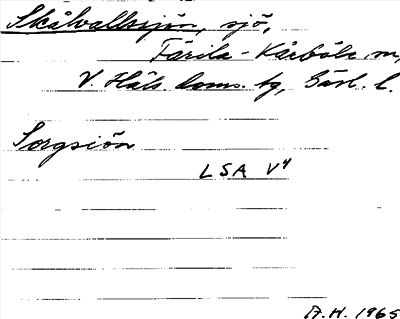 Skålvallssjön, sjö,
Färila-Kårböle m,
V. Häls. doms. tg, Gävl. l.
Sorgsiön
LSA V4
A.H. 1965